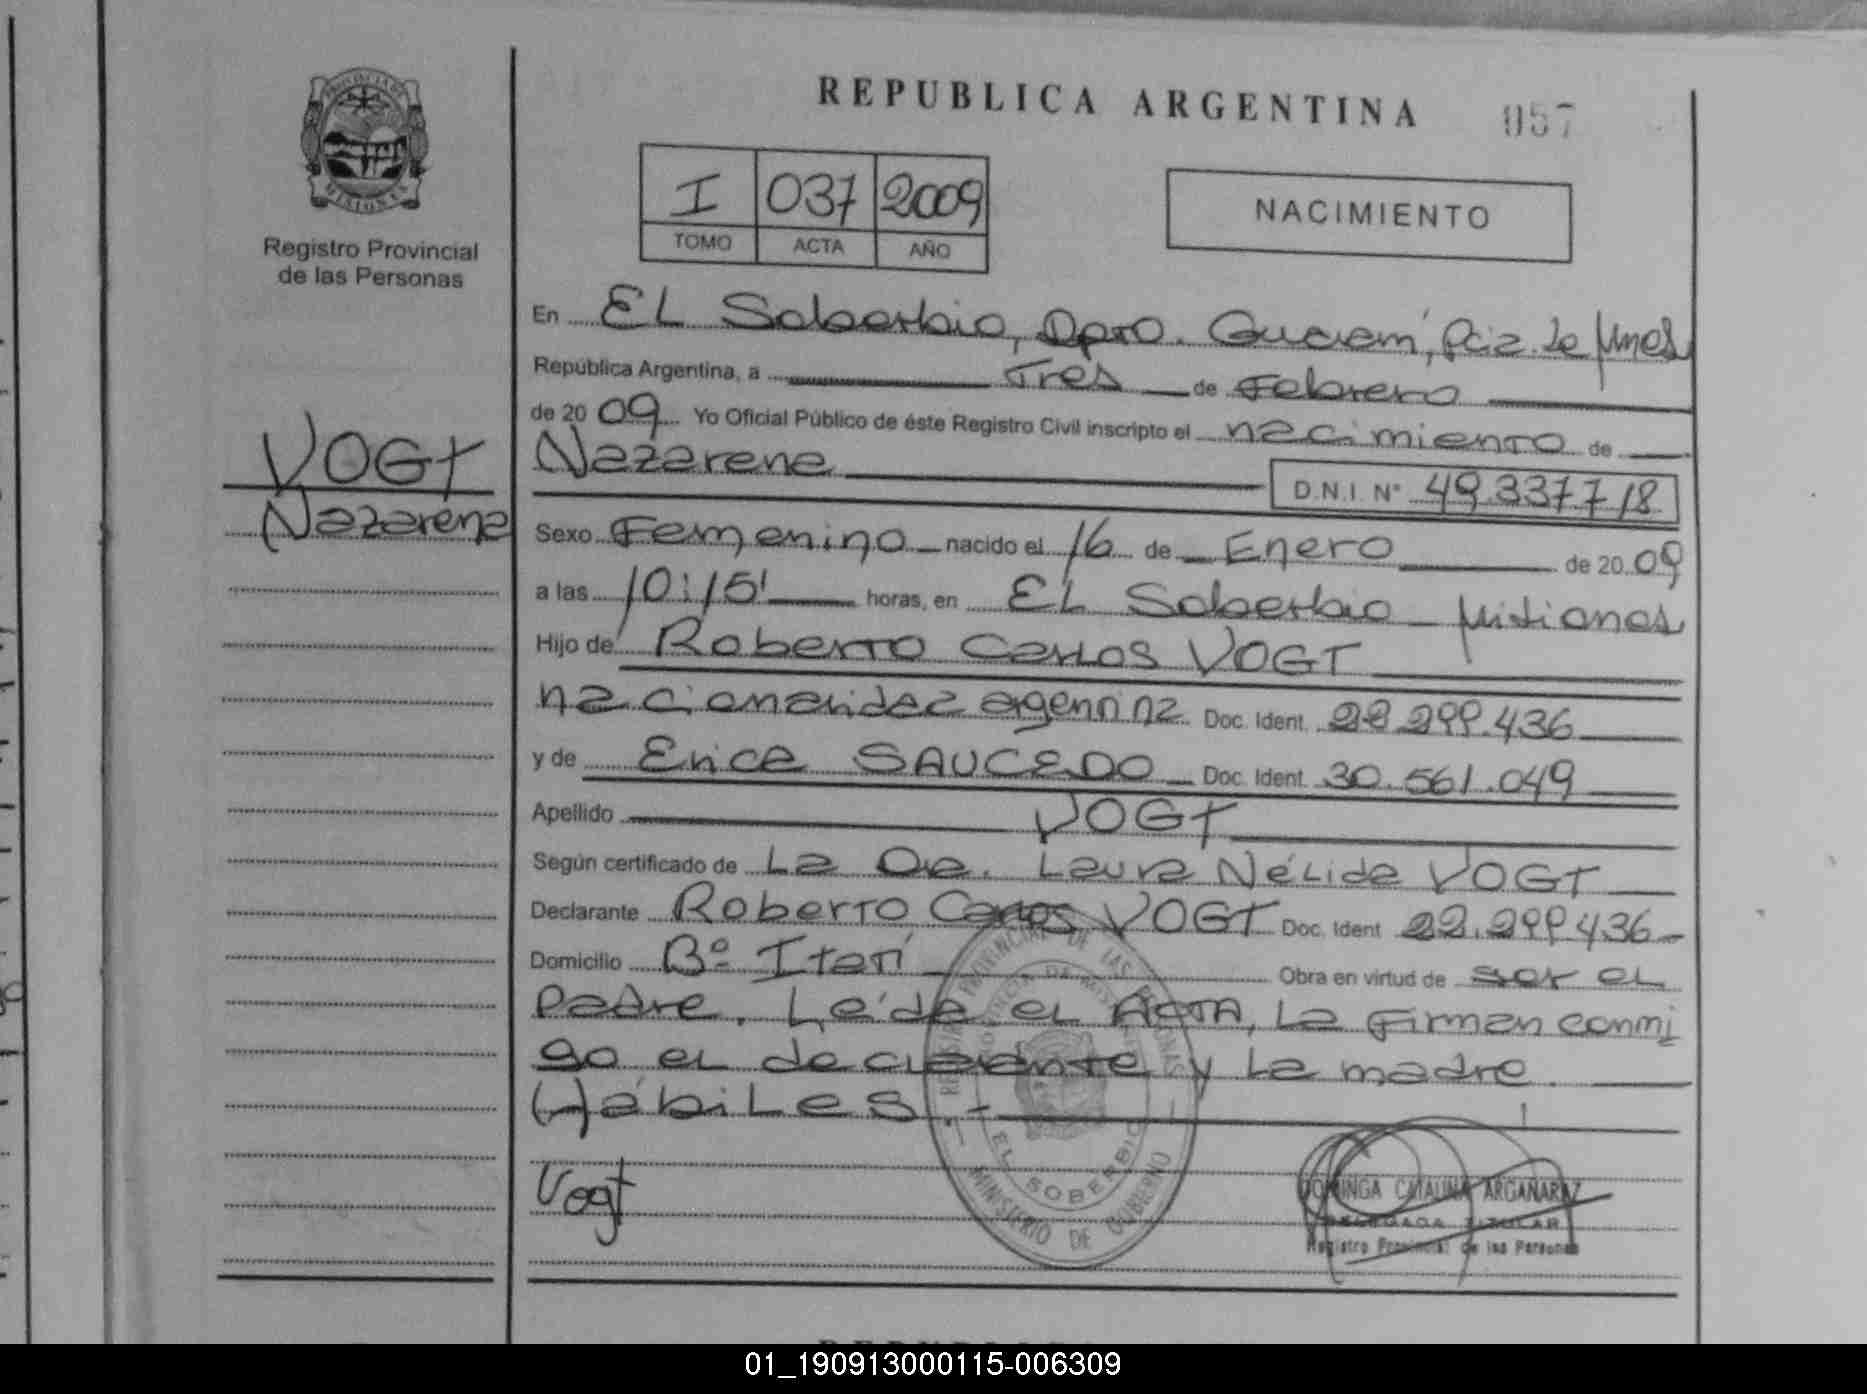 PROVINCIA DE
MISIONES
Registro Provincial
de las Personas
VOGT
Nazarena
REPUBLICA ARGENTINA
057
I 037 2009
TOMO ACTA AÑO
NACIMIENTO
En EL Soberbio, Dpto. Guaraní, Pcia. de Mnes
República Argentina, a Tres de Febrero
de 2009 Yo Oficial Público de éste Registro Civil inscripto el nacimiento de
Nazarena
D.N.I. Nº 49.337.718
Sexo Femenino nacido el 16 de Enero de 2009
a las 10:15' horas, en EL Soberbio - Misiones
Hijo de Roberto Carlos VOGT
nacionalidad argentina Doc. Ident. 299.436
y de Erica SAUCEDO Doc. Ident. 30.561.049
Apellido VOGT
Según certificado de La Dra. Laura Nélida VOGT
Declarante Roberto Carlos VOGT Doc. Ident 22.299.436
Domicilio Bº Itatí Obra en virtud de ser el
Padre. Leída el ACTA, La Firman conmi
go el declarante y La madre.
Hábiles.-
Vogt
REGISTRO PROVINCIAL DE LAS PERSONAS
PROVINCIA DE MISIONES
EL SOBERBIO
MINISTERIO DE GOBIERNO
DOMINGA CATALINA ARGAÑARAZ
DELEGADA TITULAR
Registro Provincial de las Personas
01_190913000115-006309